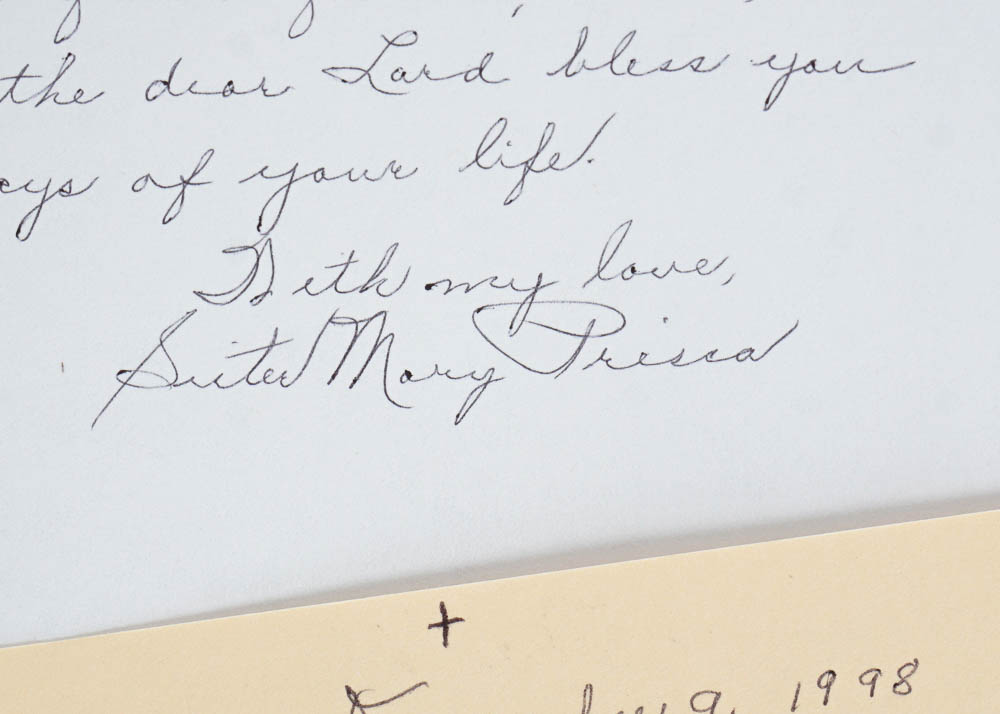 the dear Lord bless you
of your life.
With my love,
Sister Mary Prisca
+
9, 1998